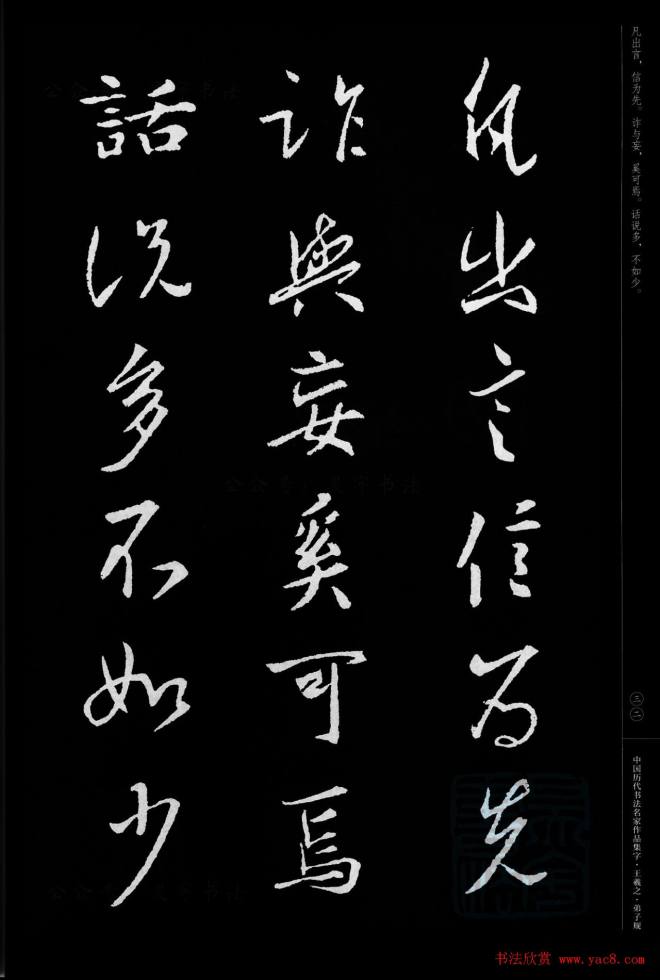 凡出言信为先
詐與妄奚可焉
話说多不如少
凡出言，信为先。诈与妄，奚可焉。话说多，不如少。
三二
中国历代书法名家作品集字·王羲之·弟子规
书法欣赏 www.yac8.com